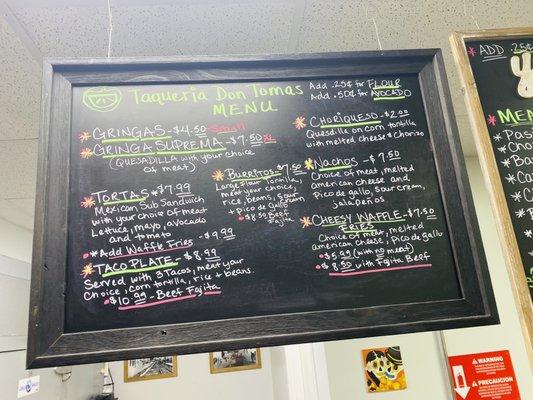 Taqueria Don Tomas
MENU
Add .25¢ for FLOUR
Add .50¢ for AVOCADO
GRINGAS - $4.50 Small
GRINGA SUPREMA - $7.50 XL
(QUESADILLA with your choice
of meat)
TORTAS $7.99
Mexican Sub Sandwich
with your choice of meat
Lettuce, mayo, avocado
and tomato
*Add Waffle Fries - $9.99
TACO PLATE - $8.99
Served with 3 Tacos, meat your
Choice, corn tortilla, rice + beans.
$10.99 - Beef Fajita
BURRITOS - $7.50
Large Flour tortilla,
meat your choice,
rice, beans, sour cream
+ pico de gallo
$8.50 Beef
Fajita
CHORIQUESO - $2.00
Quesadilla on corn tortilla
with melted cheese & chorizo
NACHOS - $7.50
Choice of meat, melted
american cheese and
pico de gallo, sour cream,
jalapeños
CHEESY WAFFLE - $7.50
FRIES
Choice of meat, melted
american cheese, Pico de gallo
$5.99 (with no meat)
$8.50 with Fajita Meat
ADD .25¢
MENU
WARNING
PRECAUCIÓN